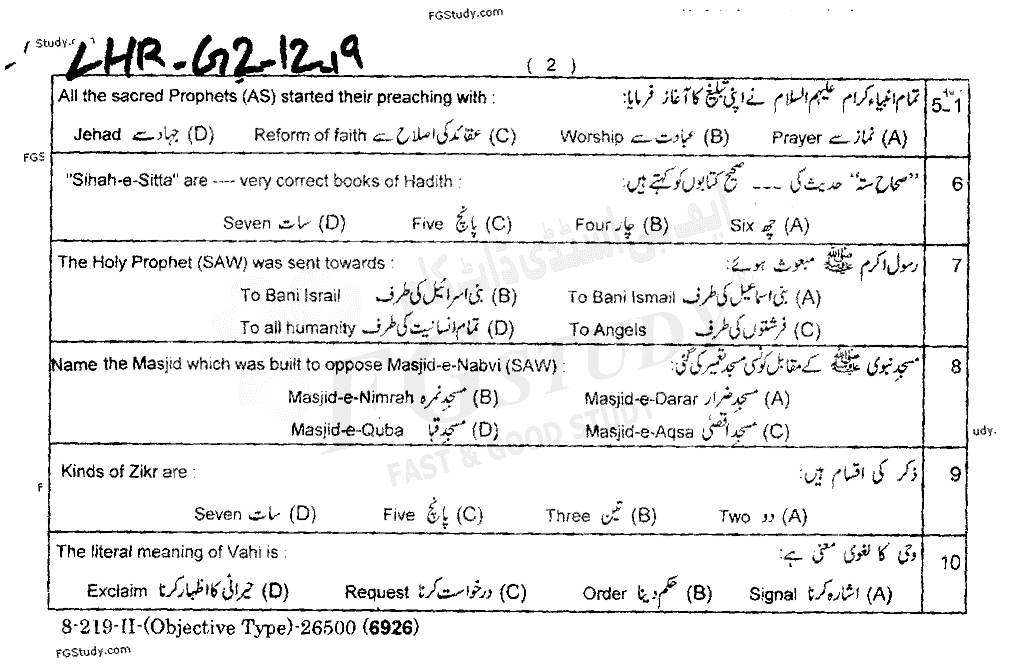 FGStudy.com
Study.
LHR-G2-12-19
( 2 )
All the sacred Prophets (AS) started their preaching with : تمام انبیاء کرام علیہم السلام نے اپنی تبلیغ کا آغاز فرمایا: 5_1
Jehad جہاد سے (D) Reform of faith عقائد کی اصلاح سے (C) Worship عبادت سے (B) Prayer نماز سے (A)
FGS
"Sihah-e-Sitta" are ---- very correct books of Hadith : "صحاح ستہ" حدیث کی --- صحیح کتابوں کو کہتے ہیں: 6
Seven سات (D) Five پانچ (C) Four چار (B) Six چھ (A)
The Holy Prophet (SAW) was sent towards : رسول اکرم ﷺ مبعوث ہوئے: 7
To Bani Israil بنی اسرائیل کی طرف (B) To Bani Ismail بنی اسماعیل کی طرف (A)
To all humanity تمام انسانیت کی طرف (D) To Angels فرشتوں کی طرف (C)
Name the Masjid which was built to oppose Masjid-e-Nabvi (SAW) : مسجد نبوی ﷺ کے مقابل کونسی مسجد تعمیر کی گئی: 8
Masjid-e-Nimrah مسجد نمرہ (B) Masjid-e-Darar مسجد ضرار (A)
Masjid-e-Quba مسجد قبا (D) Masjid-e-Aqsa مسجد اقصٰی (C)
udy.
Kinds of Zikr are : ذکر کی اقسام ہیں: 9
F
Seven سات (D) Five پانچ (C) Three تین (B) Two دو (A)
The literal meaning of Vahi is : وحی کا لغوی معنی ہے: 10
Exclaim حیرانی کا اظہار کرنا (D) Request درخواست کرنا (C) Order حکم دینا (B) Signal اشارہ کرنا (A)
8-219-II-(Objective Type)-26500 (6926)
FGStudy.com
ایف جی اسٹڈی ڈاٹ کام
FGSTUDY
FAST & GOOD STUDY